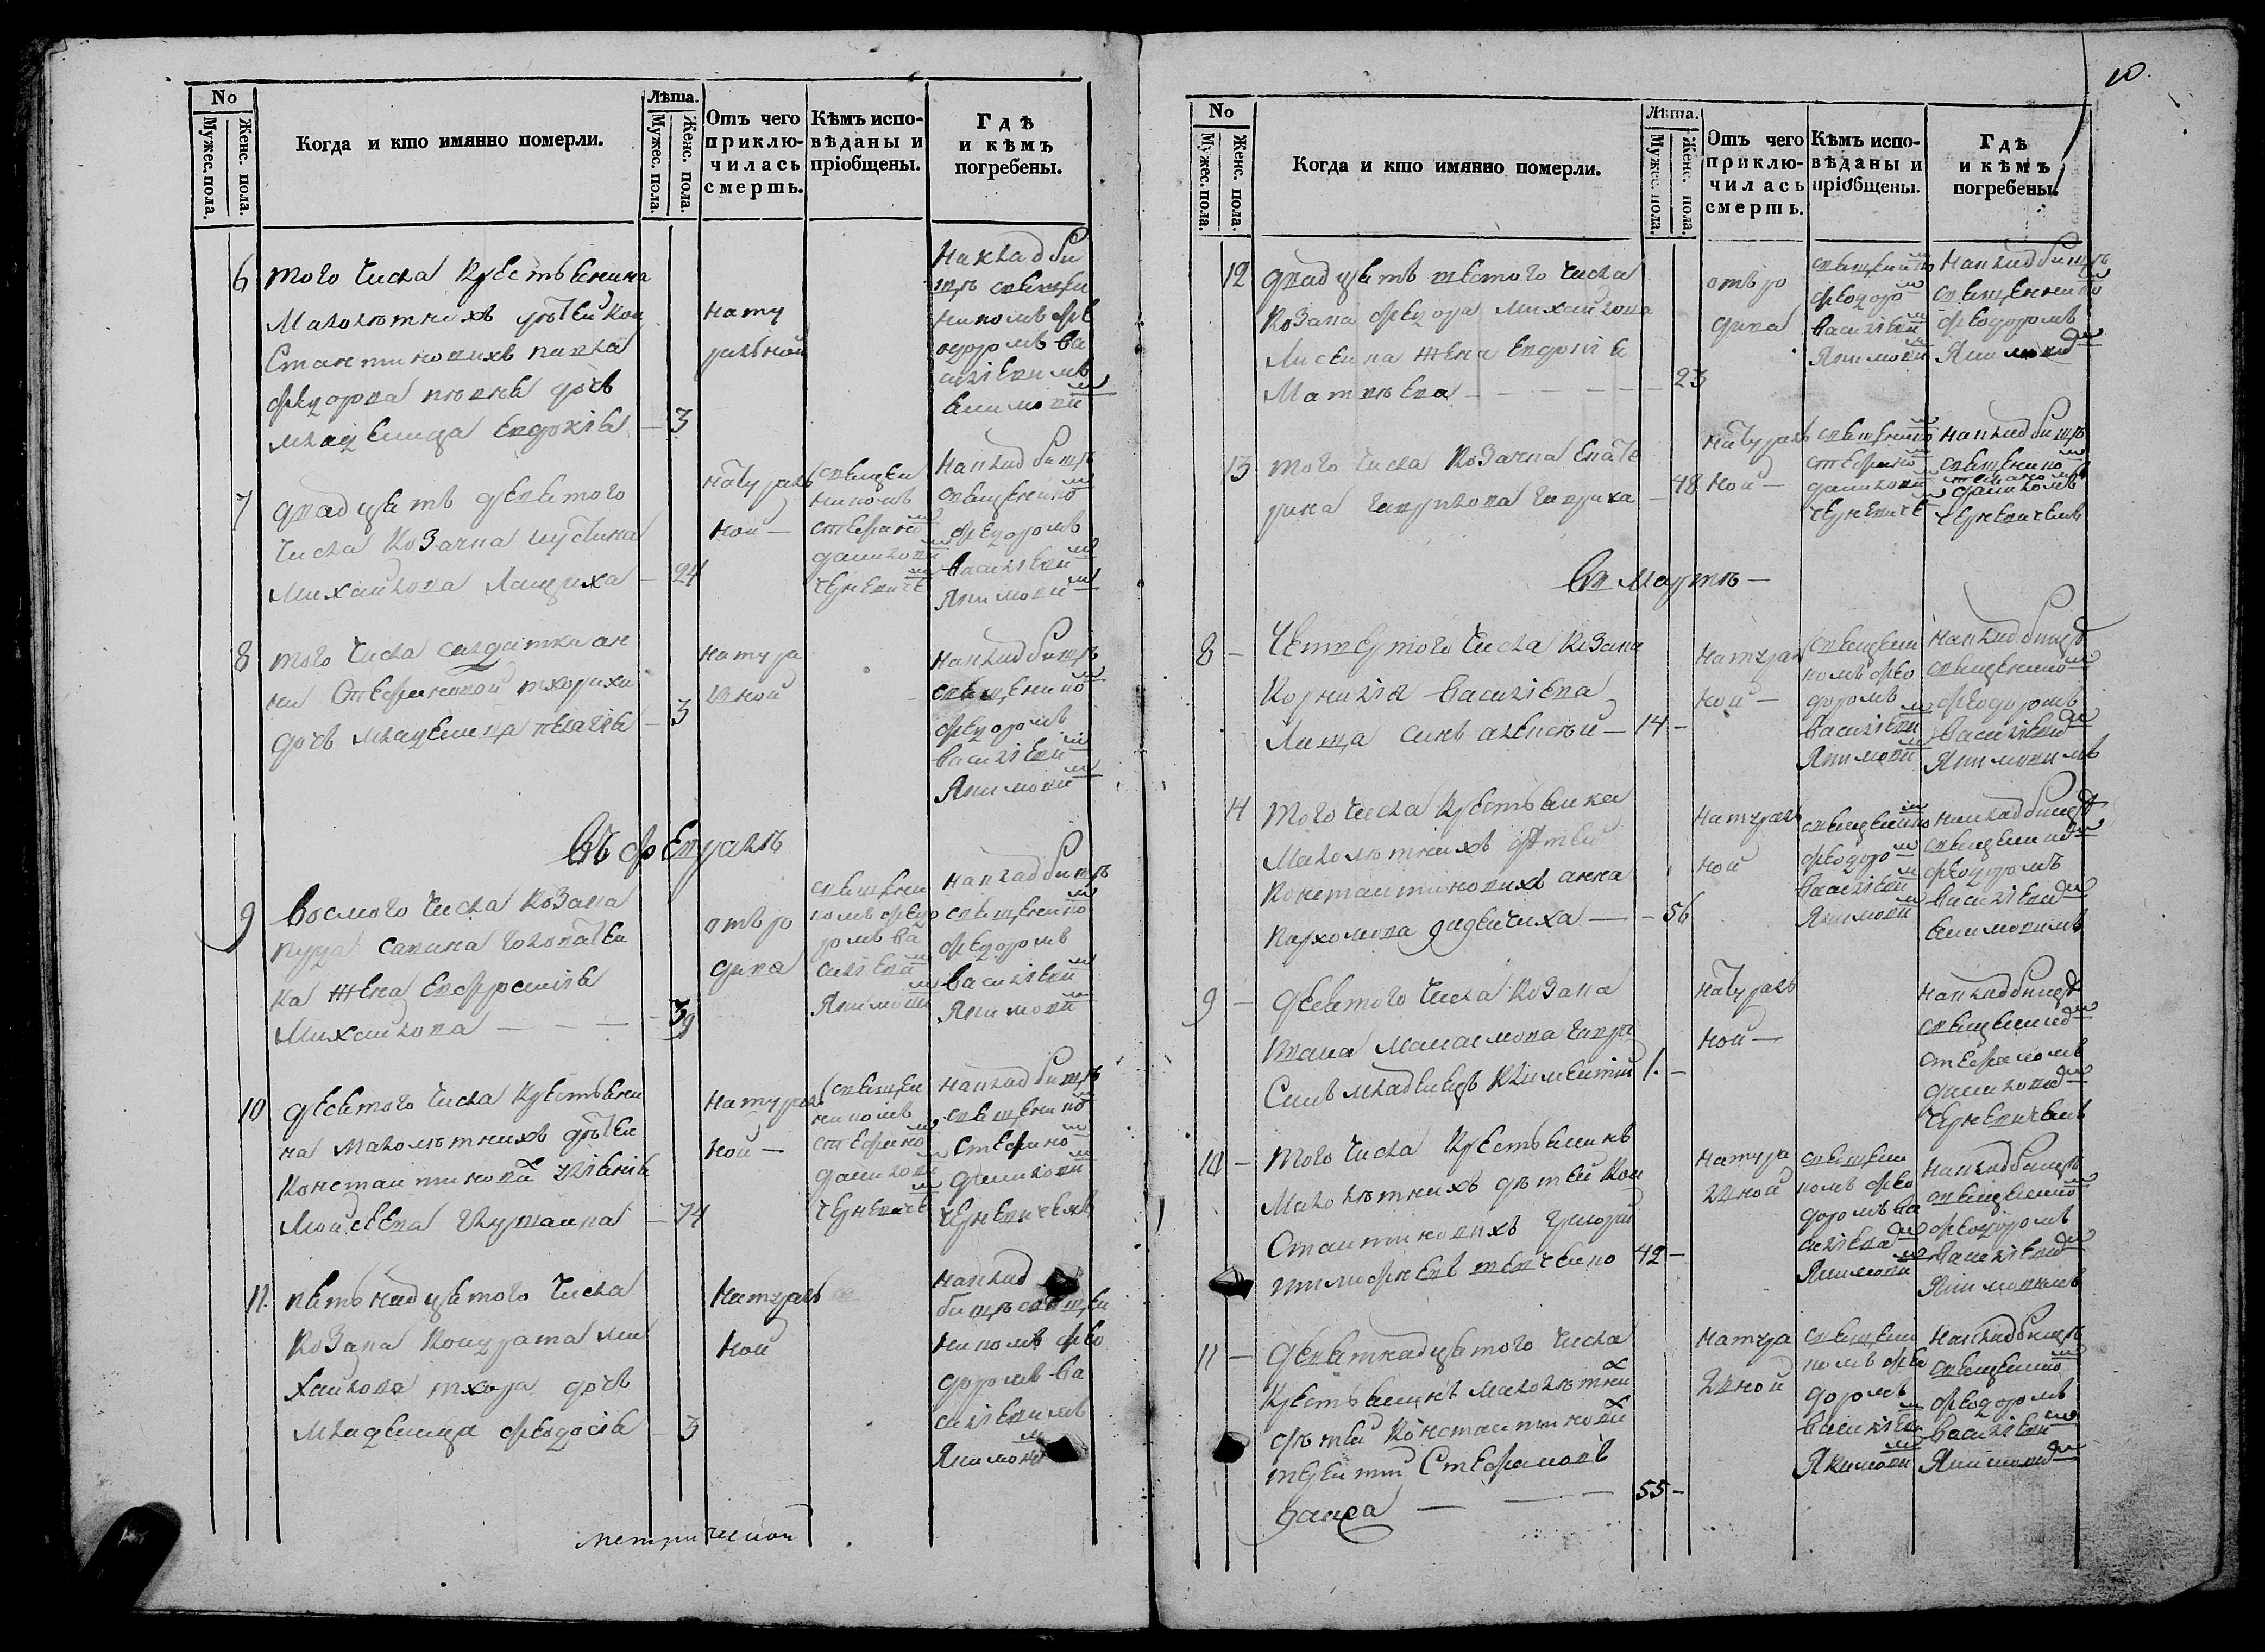 No
Мужес. пола.
Женс. пола.
Когда и кто имянно померли.
Лѣта.
Мужес. пола.
Женс. пола.
Отъ чего
приклю-
чилась
смерть.
Кѣмъ испо-
вѣданы и
пріобщены.
Гдѣ
и кѣмъ
погребены.
6 того числа крестьянина
малолѣтнихъ дѣтей Кон
стантиновихъ павла
федорова дочь
младеница Евдокія — 3
нату
ральной
На кладби
щѣ священ
никомъ фе
одоромъ ва
силіевимъ
Якимови м
7 двадцять девятого
числа козачка Иустина
Михайлова — 24
натураль
ной —
священ
никомъ
стефано м
данилови м
черневиче м
На кладбищѣ
священнико м
федоромъ
василіеви м
Якимови м
8 того числа салдатки ан
ни Стефановой ткорихи
дочь младеница пелагія — 3
натура
лной
на кладбищѣ
священнико м
федоромъ
василіеви м
Якимови м
въ февралѣ
9 восмого числа козака
савина головатен
ка жена Евфросинія
Михайлова — — — 39
отъ ро
дива
священ
комъ федо
ромъ ва
силіеви м
Якимови м
на кладбищѣ
священнико м
федоромъ
василіеви м
Якимови м
10 десятого числа крестьяни
на малолѣтнихъ дѣтей
Константинових уліянія
Мойсеева — 74
натураль
ной —
священ
никомъ
стефано м
данилови м
черневиче м
на кладбищѣ
священнико м
стефано м
данилови м
черневичемъ
11. пятьнадцятого числа
козака Кондрата ми
хайлова ткора дочь
младеница феодосія — 3
натураль
ной
на клад
бищѣ священ
никомъ фео
доромъ ва
силіевимъ
Якимови м
метрической
10.
No
Мужес. пола.
Женс. пола.
Когда и кто имянно померли.
Лѣта.
Мужес. пола.
Женс. пола.
Отъ чего
приклю-
чилась
смерть.
Кѣмъ испо-
вѣданы и
пріобщены.
Гдѣ
и кѣмъ
погребены.
12 двадцять шестого числа
козака федора михайлова
Лисенка жена Евдокія
Матвѣева — — — — 23
отъ ро
дива
священнико м
феодоро м
василіеви м
Якимови м
на кладбищѣ
священнико м
феодоромъ
Якимови м
13 того числа козачка Екате
рина Гаврилова Гавриха — 48
натураль
ной —
священнико м
стефано м
данилови м
черневиче м
на кладбищѣ
священнико м
стефаномъ
даниловимъ
черневичемъ
въ мартѣ —
8 — Четвертого числа козака
Корнилія василіева
Лища синъ алексѣй — 14 —
натураль
ной —
священни
комъ фео
доромъ
василіеви м
Якимови м
на кладбищѣ
священнико м
феодоромъ
василіеви м
Якимовимъ
14 того числа крестьянка
малолѣтнихъ дѣтей
Константиновихъ анна
пархомова дяденчиха — — 56
натураль
ной
священнико м
феодоро м
василіеви м
Якимови м
на кладбищѣ
священнико м
феодоромъ
василіеви м
Якимовимъ
9 — девятого числа козака
Ивана
Синъ младенецъ Климентій 1. —
натураль
ной —
на кладбищѣ
священнико м
стефаномъ
данилови м
черневичемъ
10 — того числа крестьянинъ
малолѣтнихъ дѣтей Кон
стантиновихъ григорій
тимофѣевъ шевченко 42 —
натура
лной
священни
комъ фео
доромъ ва
силіеви м
Якимови м
на кладбищѣ
священнико м
феодоромъ
василіеви м
Якимовимъ
11 — девятнадцятого числа
крестьянинъ малолѣтни х
дѣтей Константинови х
терентій Стефановъ
заяца — — — 55 —
натура
лной
священни
комъ фео
доромъ
василіеви м
Якимови м
на кладбищѣ
священнико м
феодоромъ
василіеви м
Якимови м